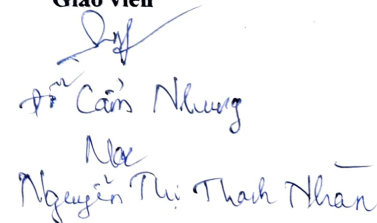 Giáo viên
Đỗ Cẩm Nhung
Nguyễn Thị Thanh Nhàn